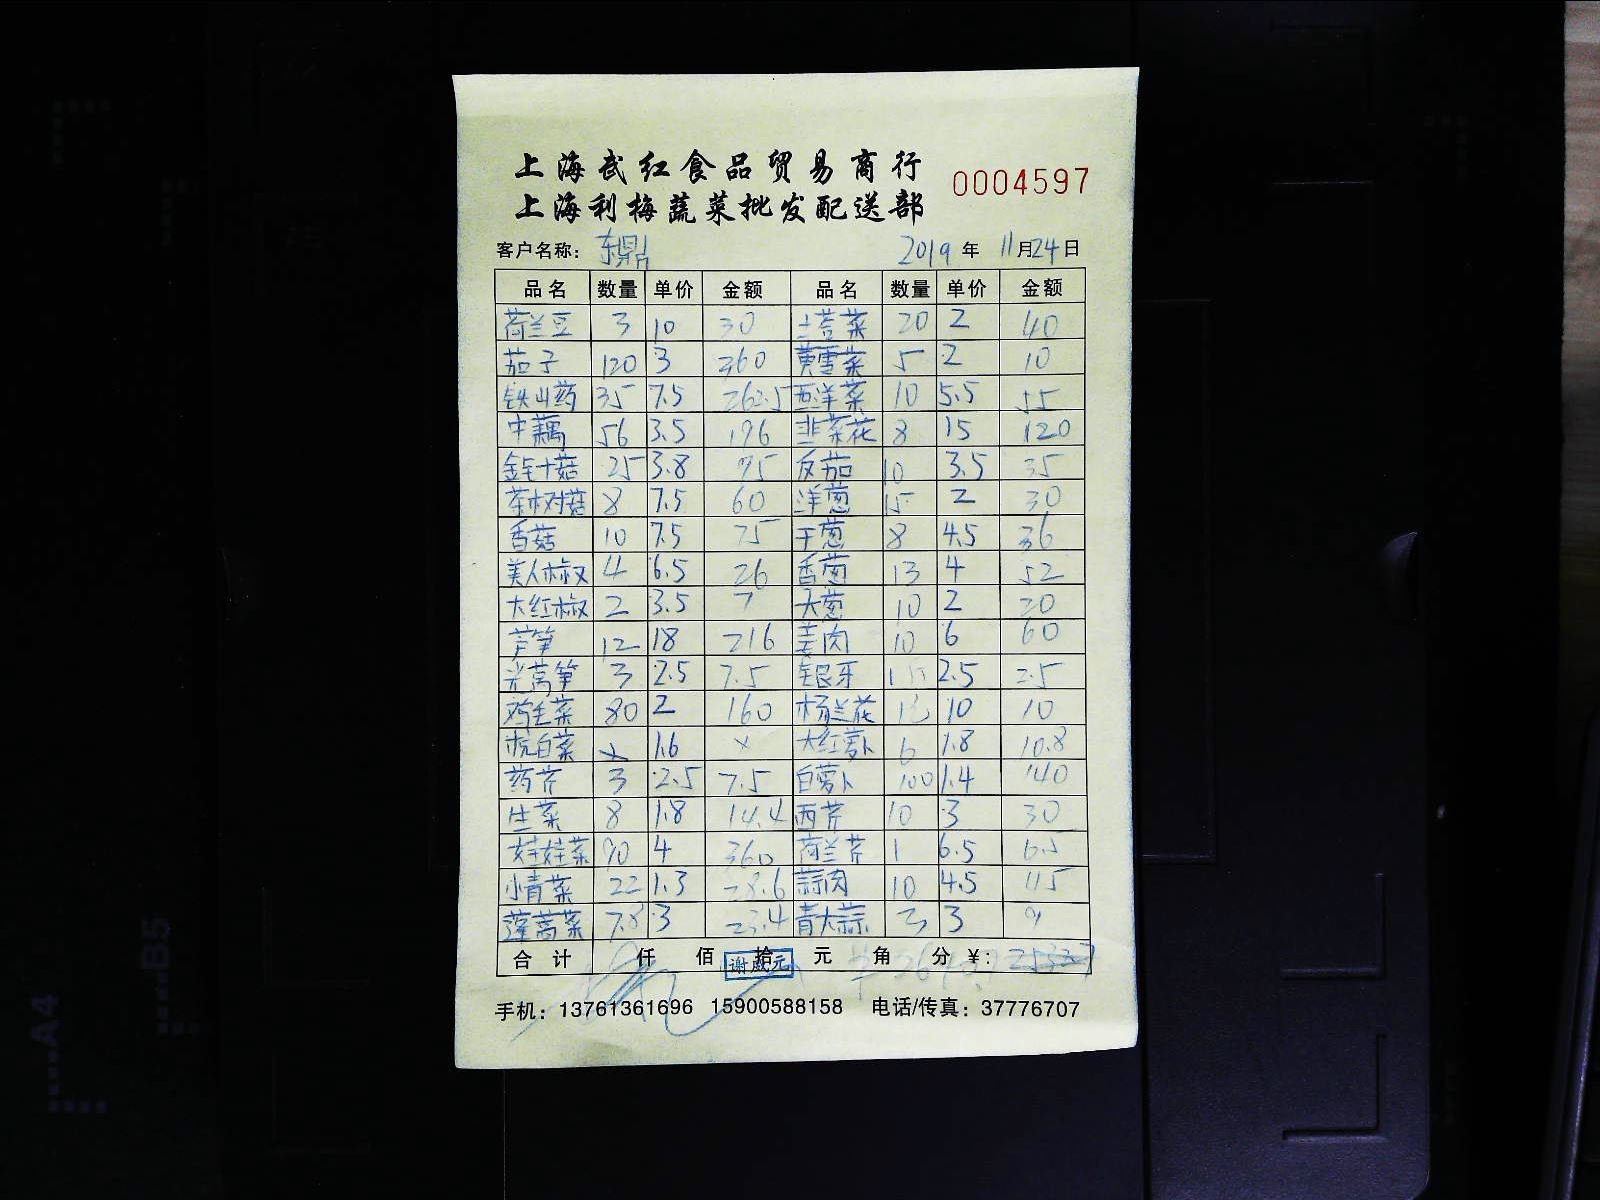 上海武红食品贸易商行
0004597
上海利梅蔬菜批发配送部
客户名称: 东鼎 2019年11月24日
品名 数量 单价 金额 品名 数量 单价 金额
荷兰豆 3 10 30 土苔菜 20 2 40
茄子 120 3 360 黄雪菜 5 2 10
铁山药 35 7.5 262.5 西洋菜 10 5.5 55
中藕 56 3.5 196 韭菜花 8 15 120
金针菇 25 3.8 95 反茄 10 3.5 35
茶树菇 8 7.5 60 洋葱 15 2 30
香菇 10 7.5 75 干葱 8 4.5 36
美人椒 4 6.5 26 香葱 13 4 52
大红椒 2 3.5 7 大葱 10 2 20
芦笋 12 18 216 姜肉 10 6 60
光莴笋 3 2.5 7.5 银牙 2.5 2.5
鸡毛菜 80 2 160 杨兰花 10 10
杭白菜 x 1.6 x 大红萝卜 6 1.8 10.8
药芹 3 2.5 7.5 白萝卜 100 1.4 140
生菜 8 1.8 14.4 西芹 10 3 30
娃娃菜 90 4 360 荷兰芹 1 6.5 6.5
小青菜 22 1.3 28.6 蒜肉 10 4.5 45
蓬蒿菜 7.8 3 23.4 青大蒜 3 3 9
合计 仟 佰 拾 元 角 分 ¥:
谢成元
手机: 13761361696 15900588158 电话/传真: 37776707